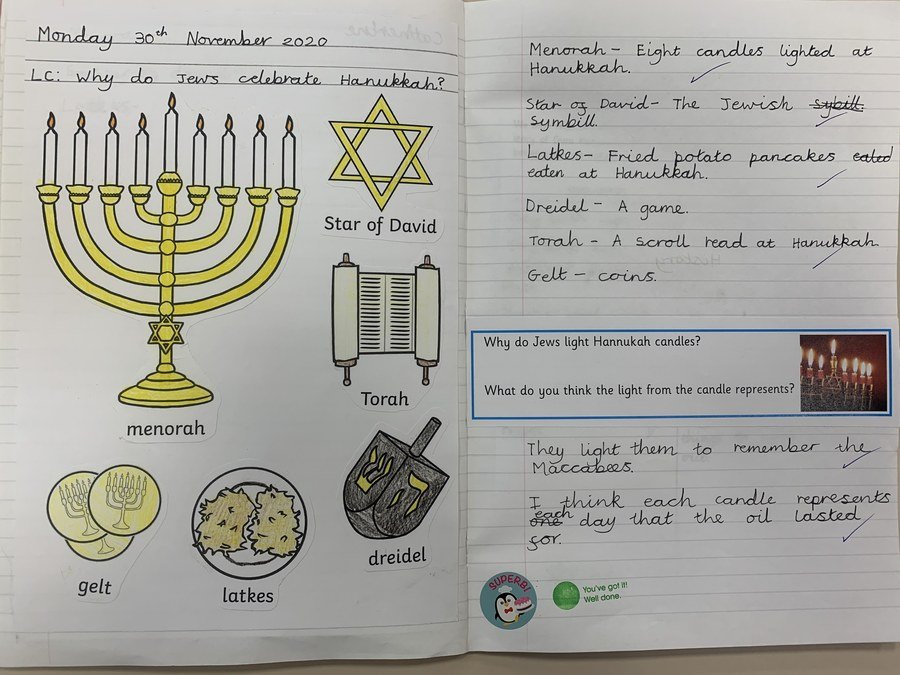 Monday 30th November 2020
LC: Why do Jews celebrate Hanukkah?
Star of David
Torah
menorah
gelt
latkes
dreidel
Menorah - Eight candles lighted at
Hanukkah.
Star of David - The Jewish Sybill.
Symbill.
Latkes - Fried potato pancakes eated
eaten at Hanukkah.
Dreidel - A game.
Torah - A scroll read at Hanukkah.
Gelt - coins.
Why do Jews light Hannukah candles?
What do you think the light from the candle represents?
They light them to remember the
Maccabees.
I think each candle represents
one each day that the oil lasted
for.
SUPERB!
You've got it!
Well done.